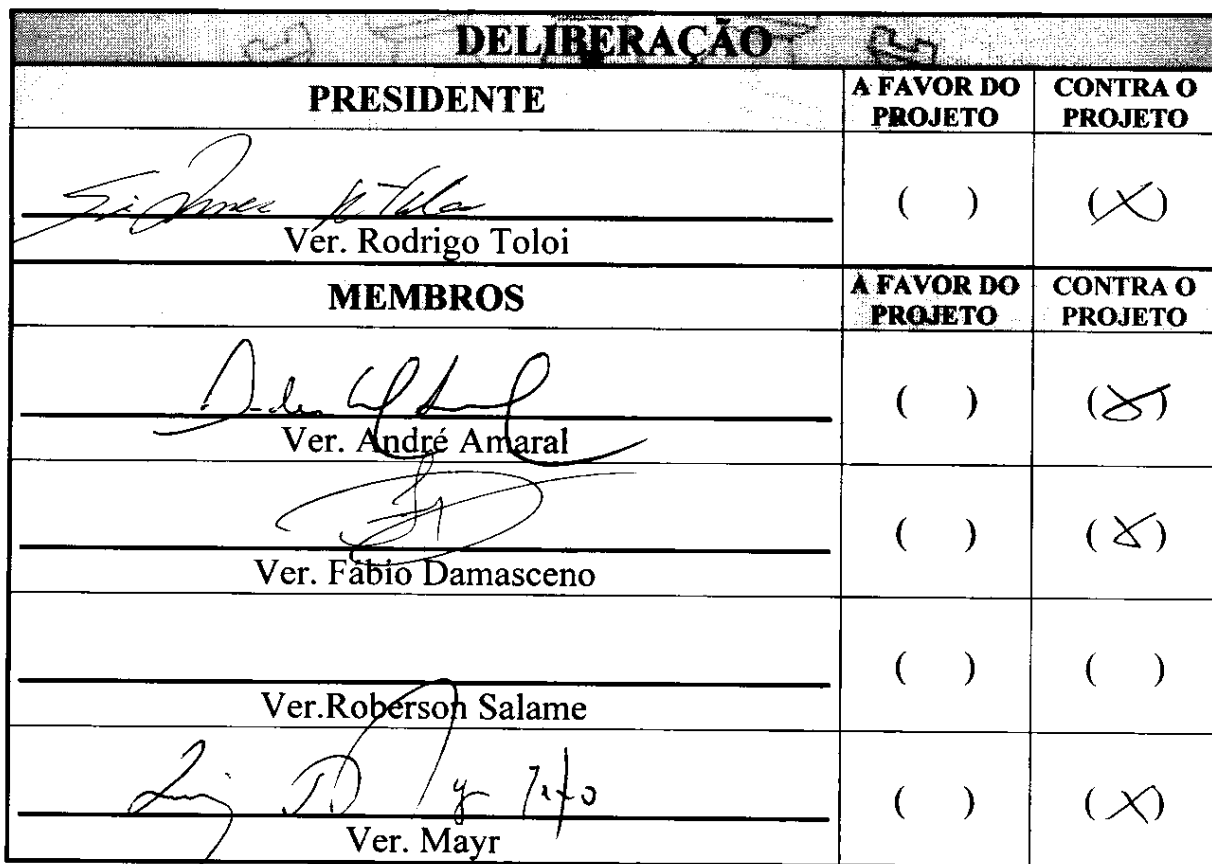 DELIBERAÇÃO
PRESIDENTE
A FAVOR DO PROJETO
CONTRA O PROJETO
( )
(X)
Ver. Rodrigo Toloi
MEMBROS
A FAVOR DO PROJETO
CONTRA O PROJETO
( )
(X)
Ver. André Amaral
( )
(X)
Ver. Fábio Damasceno
( )
( )
Ver.Roberson Salame
( )
(X)
Ver. Mayr